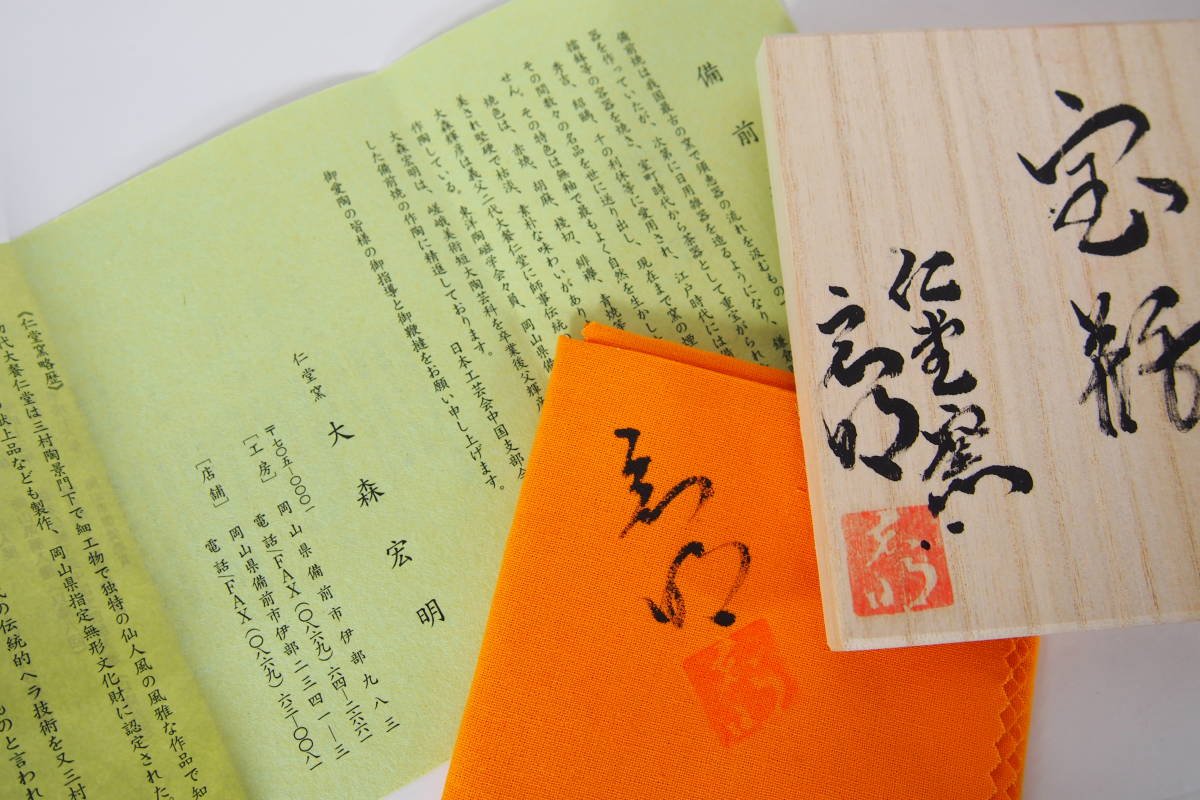 備前
備前焼は我国最古の窯で須恵器の流れを汲むもの
器を作っていたが、次第に日用雑器を造るようになり、鎌倉
擂鉢等の容器を焼、室町時代から茶器として重宝がられ
秀吉、紹鷗、千の利休等に愛用され、江戸時代には
その間数々の名品を世に送り出し、現在まで窯の煙
せん。その特色は無釉で最もよく自然を生かし
焼色は、赤焼、胡麻、桟切、緋襷、青焼等
美され堅硬で枯淡、素朴な味わいがあり
大森輝彦は義父二代大饗仁堂に師事伝統
作陶している。東洋陶磁学会々員、岡山県備
大森宏明は、嵯峨美術短大陶芸科を卒業後父輝彦
した備前焼の作陶に精進しております。日本工芸会中国支部会
御愛陶の皆様の御指導と御鞭撻をお願い申し上げます。
仁堂窯 大森宏明
〒七〇五―〇〇〇一 岡山県備前市伊部九八三
［工房］ 電話/FAX（〇八六九）六四―二六六一
岡山県備前市伊部一二三四一―三
［店舗］ 電話/FAX（〇八六九）六三―〇〇八一
《仁堂窯略歴》
初代大饗仁堂は三村陶景門下で細工物で独特の仙人風の風雅な作品で知
献上品なども製作、岡山県指定無形文化財に認定された。
の伝統的ヘラ技術を又三村
ものと言われ
宝瓶
仁堂窯
宏明
宏明
宏明
宏明